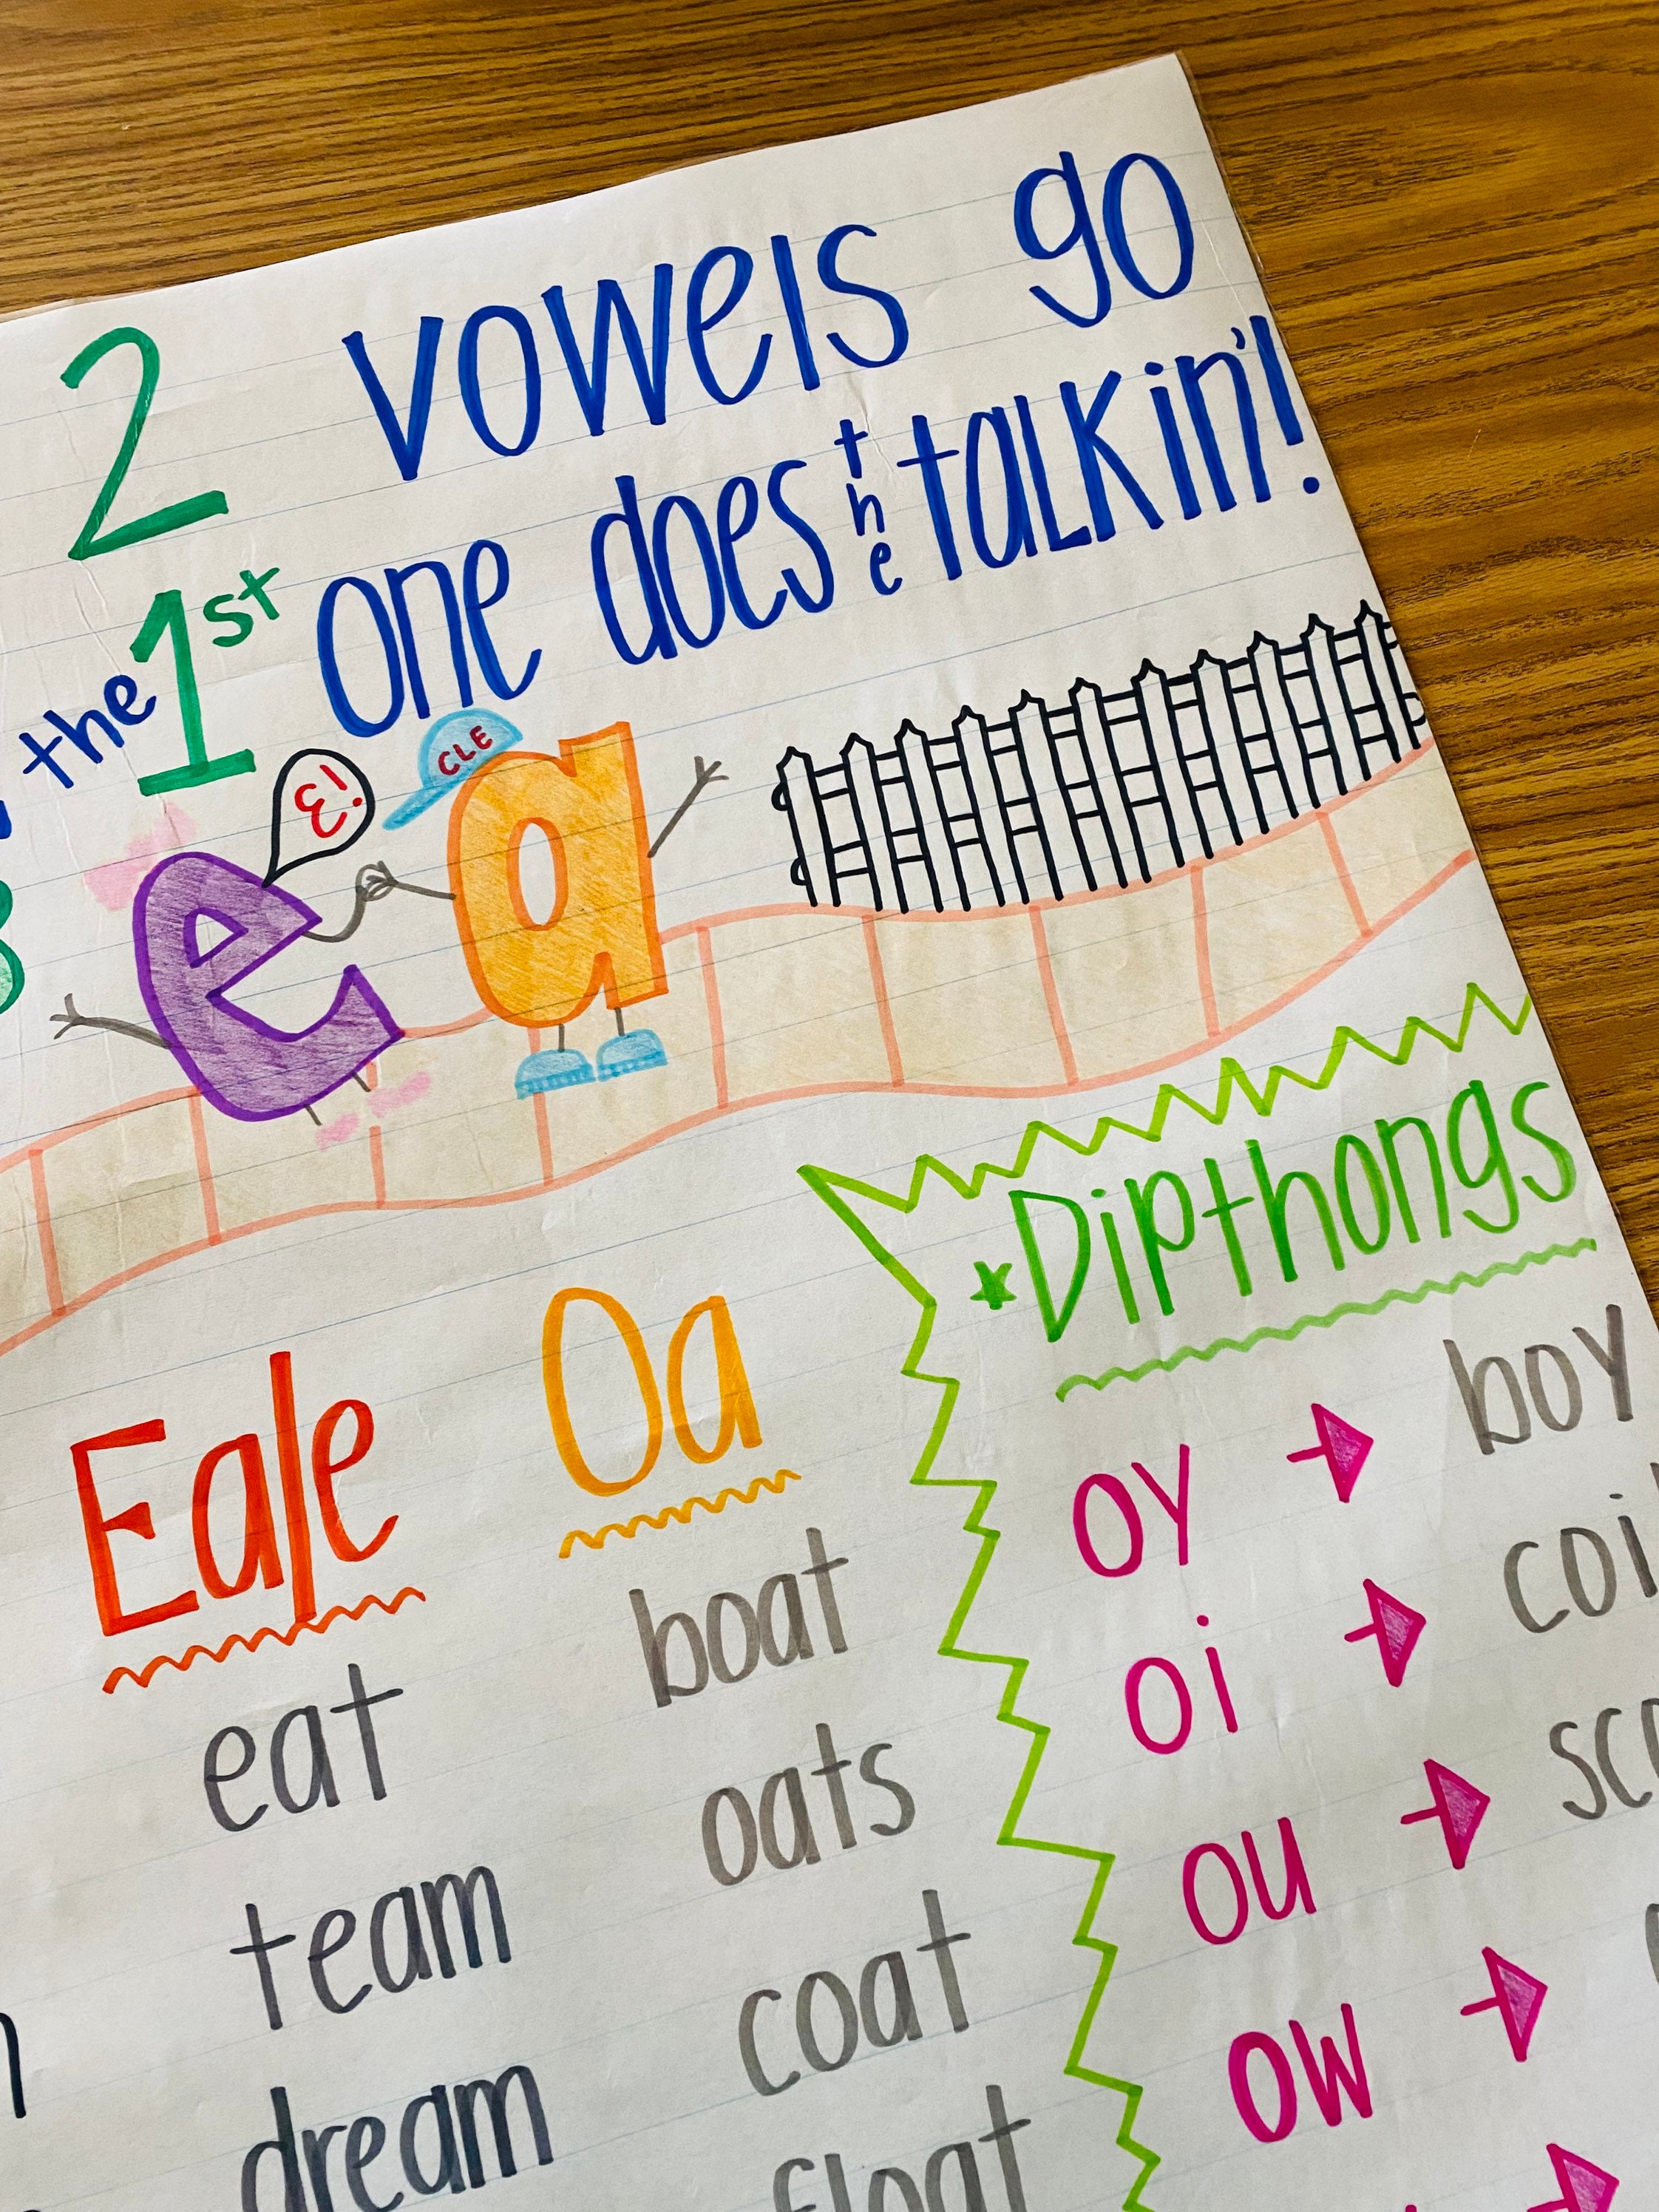 2 vowels go
the 1st one does the talkin'!
E!
CLE
e a
Ea/e
eat
team
dream
Oa
boat
oats
coat
float
*Dipthongs
oy → boy
oi →
ou →
ow →